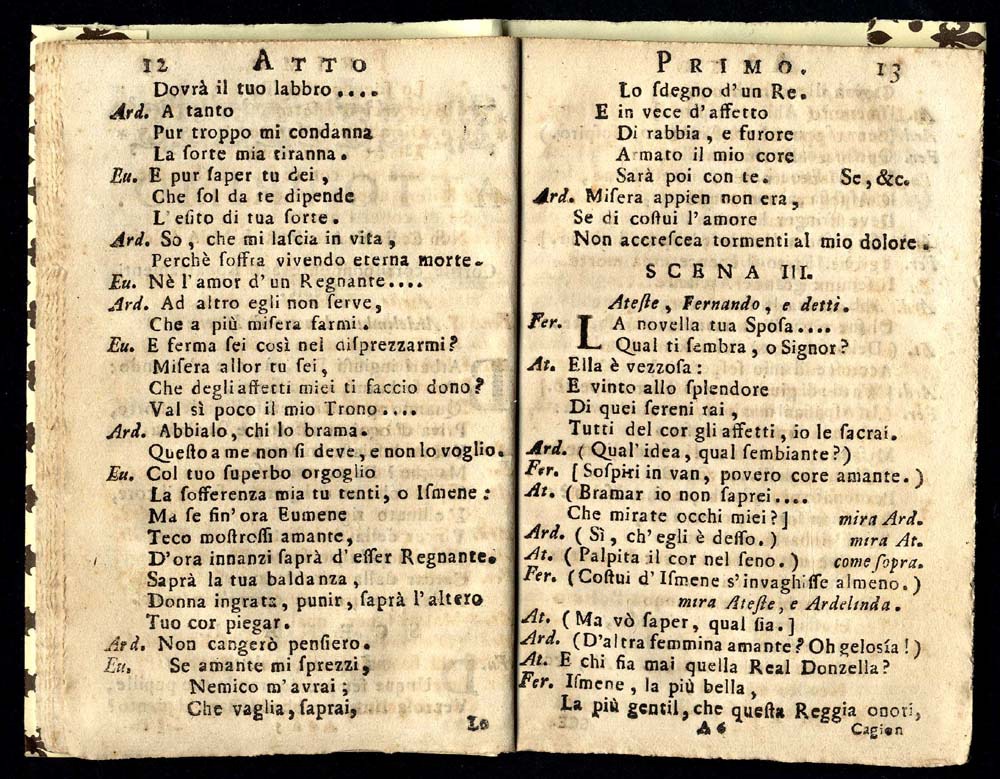 12 ATTO
Dovrà il tuo labbro....
Ard. A tanto
Pur troppo mi condanna
La ſorte mia tiranna.
Eu. E pur ſaper tu dei,
Che ſol da te dipende
L'eſito di tua ſorte.
Ard. Sò, che mi laſcia in vita,
Perchè ſoffra vivendo eterna morte.
Eu. Nè l'amor d'un Regnante....
Ard. Ad altro egli non ſerve,
Che a più miſera farmi.
Eu. E ferma ſei così nel diſprezzarmi?
Miſera allor tu ſei,
Che degli affetti miei ti faccio dono?
Val sì poco il mio Trono....
Ard. Abbialo, chi lo brama.
Queſto a me non ſi deve, e non lo voglio.
Eu. Col tuo ſuperbo orgoglio
La ſofferenza mia tu tenti, o Iſmene:
Ma ſe fin'ora Eumene
Teco moſtroſſi amante,
D'ora innanzi ſaprà d'eſſer Regnante.
Saprà la tua baldanza,
Donna ingrata, punir, ſaprà l'altero
Tuo cor piegar.
Ard. Non cangerò penſiero.
Eu. Se amante mi ſprezzi,
Nemico m'avrai;
Che vaglia, ſaprai,
Lo
PRIMO. 13
Lo ſdegno d'un Re.
E in vece d'affetto
Di rabbia, e furore
Armato il mio core
Sarà poi con te. Se, &c.
Ard. Miſera appien non era,
Se di coſtui l'amore
Non accreſcea tormenti al mio dolore.
SCENA III.
Ateſte, Fernando, e detti.
Fer. LA novella tua Spoſa....
Qual ti ſembra, o Signor?
At. Ella è vezzoſa:
E vinto allo ſplendore
Di quei ſereni rai,
Tutti del cor gli affetti, io le ſacrai.
Ard. (Qual'idea, qual ſembiante?)
Fer. [Soſpiri in van, povero core amante.)
At. (Bramar io non ſaprei....
Che mirate occhi miei?] mira Ard.
Ard. (Sì, ch'egli è deſſo.) mira At.
At. (Palpita il cor nel ſeno.) come ſopra.
Fer. (Coſtui d'Iſmene s'invaghiſſe almeno.)
mira Ateſte, e Ardelinda.
At. (Ma vò ſaper, qual ſia.]
Ard. (D'altra femmina amante? Oh geloſía!)
At. E chi ſia mai quella Real Donzella?
Fer. Iſmene, la più bella,
La più gentil, che queſta Reggia onori,
A 6 Cagion